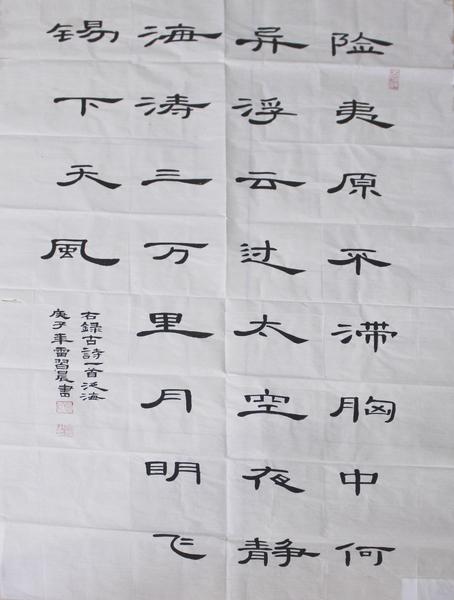 险夷原不滞胸中何
异浮云过太空夜静
海涛三万里月明飞
锡下天风
右録古詩一首泛海
庚子年雷習晨書